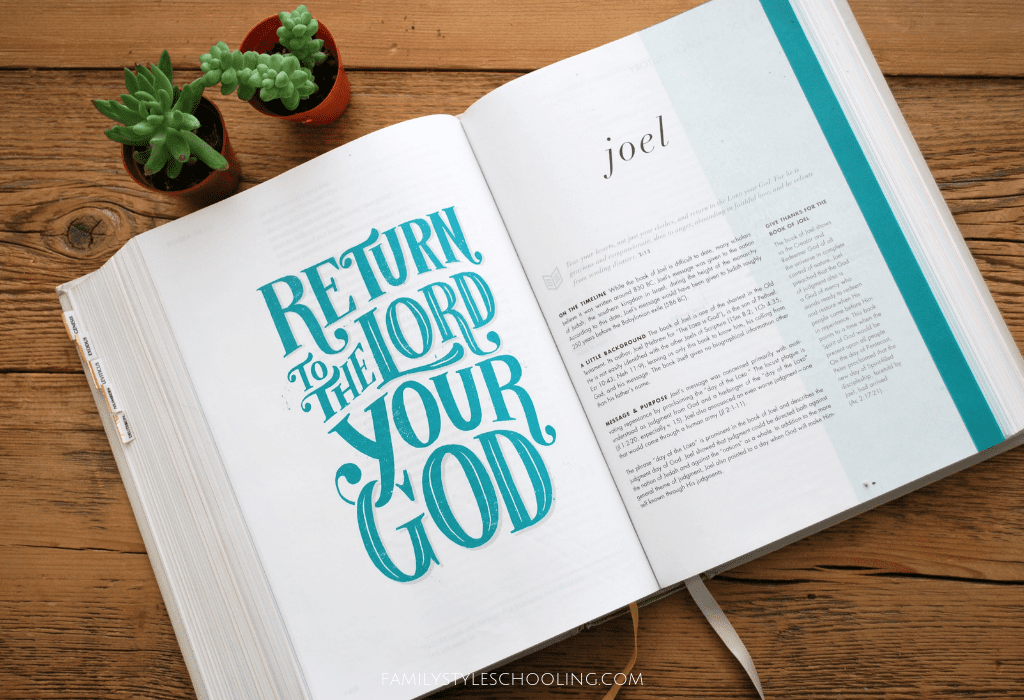 RETURN
TO THE LORD
YOUR
GOD
joel
Rend your hearts, not just your clothes, and return to the LORD your God. For he is
gracious and compassionate, slow to anger, abounding in faithful love, and he relents
from sending disaster. 2:13
ON THE TIMELINE While the book of Joel is difficult to date, many scholars
believe it was written around 830 BC. Joel's message was given to the nation
of Judah, the southern kingdom in Israel, during the height of the monarchy.
According to this date, Joel's message would have been given to Judah roughly
250 years before the Babylonian exile (586 BC).
A LITTLE BACKGROUND The book of Joel is one of the shortest in the Old
Testament. Its author, Joel (Hebrew for "The LORD is God"), is the son of Pethuel.
He is not easily identified with the other Joels of Scripture (1Sm 8:2; 1Ch 4:35;
Ezr 10:43; Neh 11:9), leaving us only this book to know him, his calling from
God, and his message. The book itself gives no biographical information other
than his father's name.
MESSAGE & PURPOSE Joel's message was concerned primarily with moti-
vating repentance by proclaiming the "day of the LORD." The locust plague is
understood as judgment from God and a harbinger of the "day of the LORD"
(Jl 1:2-20, especially v. 15). Joel also announced an even worse judgment—one
that would come through a human army (Jl 2:1-11).
The phrase "day of the LORD" is prominent in the book of Joel and describes the
judgment day of God. Joel showed that judgment could be directed both against
the nation of Judah and against the "nations" as a whole. In addition to the more
general theme of judgment, Joel also pointed to a day when God will make Him-
self known through His judgments.
GIVE THANKS FOR THE
BOOK OF JOEL
The book of Joel shows
us the Creator and
Redeemer God of all
the universe in complete
control of nature. Joel
preached that the God
of judgment also is
a God of mercy who
stands ready to redeem
and restore when His
people come before Him
in repentance. This book
points to a time when the
Spirit of God would be
present upon all people.
On the day of Pentecost,
Peter proclaimed that the
new day of Spirit-filled
discipleship, foretold by
Joel, had arrived
(Ac 2:17-21).
FAMILYSTYLESCHOOLING.COM